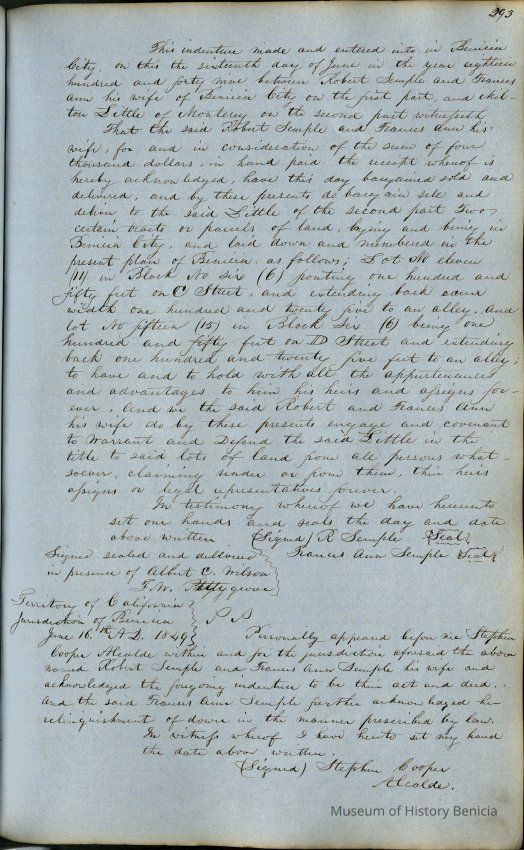 293
This indenture made and entered into in Benicia
City, on this the sixteenth day of June in the year eighteen
hundred and forty nine between Robert Semple and Frances
ann his wife of Benicia City on the first part, and Mil-
ton Little of Monterey on the second part witnesseth,
That the said Robert Semple and Frances Ann his
wife, for and in consideration of the sum of four
thousand dollars, in hand paid the receipt whereof is
hereby acknowledged, have this day bargained sold and
delivered, and by these presents do bargain sell and
deliver to the said Little of the second part Two
certain tracts or parcels of land, lying and being in
Benicia City, and laid down and numbered in the
present plan of Benicia as follows; Lot No eleven
(11) in Block No six (6) fronting one hundred and
fifty feet on C Street, and extending back same
width one hundred and twenty five to an alley, and
lot No fifteen (15) in Block Six (6) being one
hundred and fifty feet on D Street and extending
back one hundred and twenty five feet to an alley;
to have and to hold with all the appurtenances
and advantages to him his heirs and assigns for-
ever, And we the said Robert and Frances Ann
his wife do by these presents engage and covenant
to Warrent and Defend the said Little in the
title to said lots of land from all persons what-
soever, claiming under or from them, their heirs
assigns or legal representatives forever.
In testimony whereof we have hereunto
set our hands and seals the day and date
above written (Signed) R Semple {Seal}
Signed sealed and delivered Frances Ann Semple {Seal}
in presence of Albert C. Wilson
F. W. Pettygrove
Territory of California
Jurisdiction of Benicia } S S
June 16.th A.D. 1849 Personally appeared before me Stephen
Cooper Alcalde within and for the jurisdiction aforesaid the above
named Robert Semple and Frances Ann Semple his wife and
acknowledged the foregoing indenture to be their act and deed.
And the said Frances Ann Semple further acknowledged her
relinquishment of dower in the manner prescribed by law.
In witness whereof I have hereto set my hand
the date above written.
(Signed) Stephen Cooper
Alcalde.
Museum of History Benicia